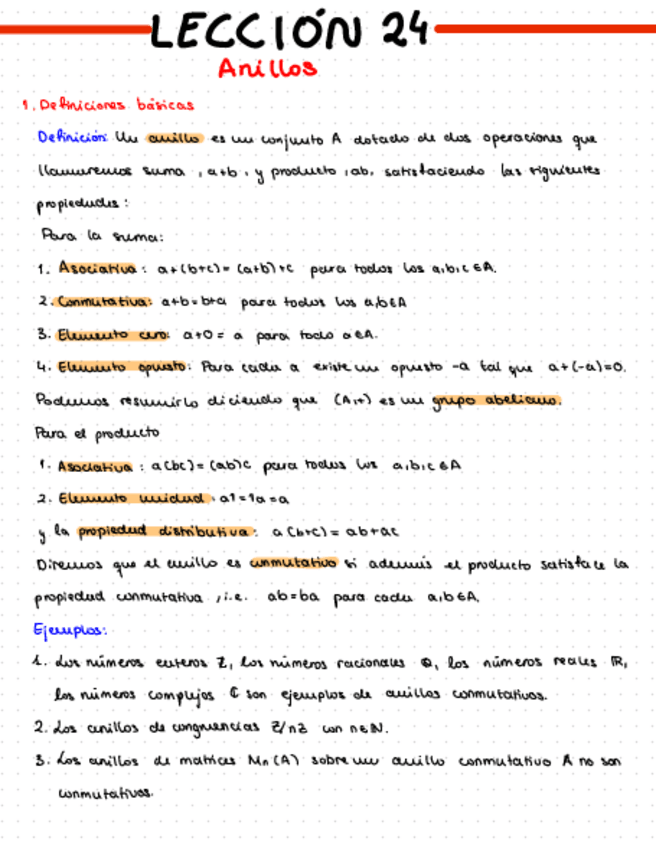 LECCIÓN 24
Anillos
1. Definiciones básicas
Definición: Un anillo es un conjunto A dotado de dos operaciones que
llamaremos suma, a+b, y producto, ab, satisfaciendo las siguientes
propiedades:
Para la suma:
1. Asociativa: a+(b+c)=(a+b)+c para todos los a,b,c ∈ A.
2. Conmutativa: a+b=b+a para todos los a,b ∈ A
3. Elemento cero: a+0=a para todo a ∈ A.
4. Elemento opuesto: Para cada a existe un opuesto -a tal que a+(-a)=0.
Podemos resumirlo diciendo que (A,+) es un grupo abeliano.
Para el producto
1. Asociativa: a(bc)=(ab)c para todos los a,b,c ∈ A
2. Elemento unidad: a1=1a=a
y la propiedad distributiva: a(b+c)=ab+ac
Diremos que el anillo es conmutativo si además el producto satisface la
propiedad conmutativa, i.e. ab=ba para cada a,b ∈ A.
Ejemplos:
1. Los números enteros ℤ, los números racionales ℚ, los números reales ℝ,
los números complejos ℂ son ejemplos de anillos conmutativos.
2. Los anillos de congruencias ℤ/nℤ con n ∈ ℕ.
3. Los anillos de matrices Mn(A) sobre un anillo conmutativo A no son
conmutativos.